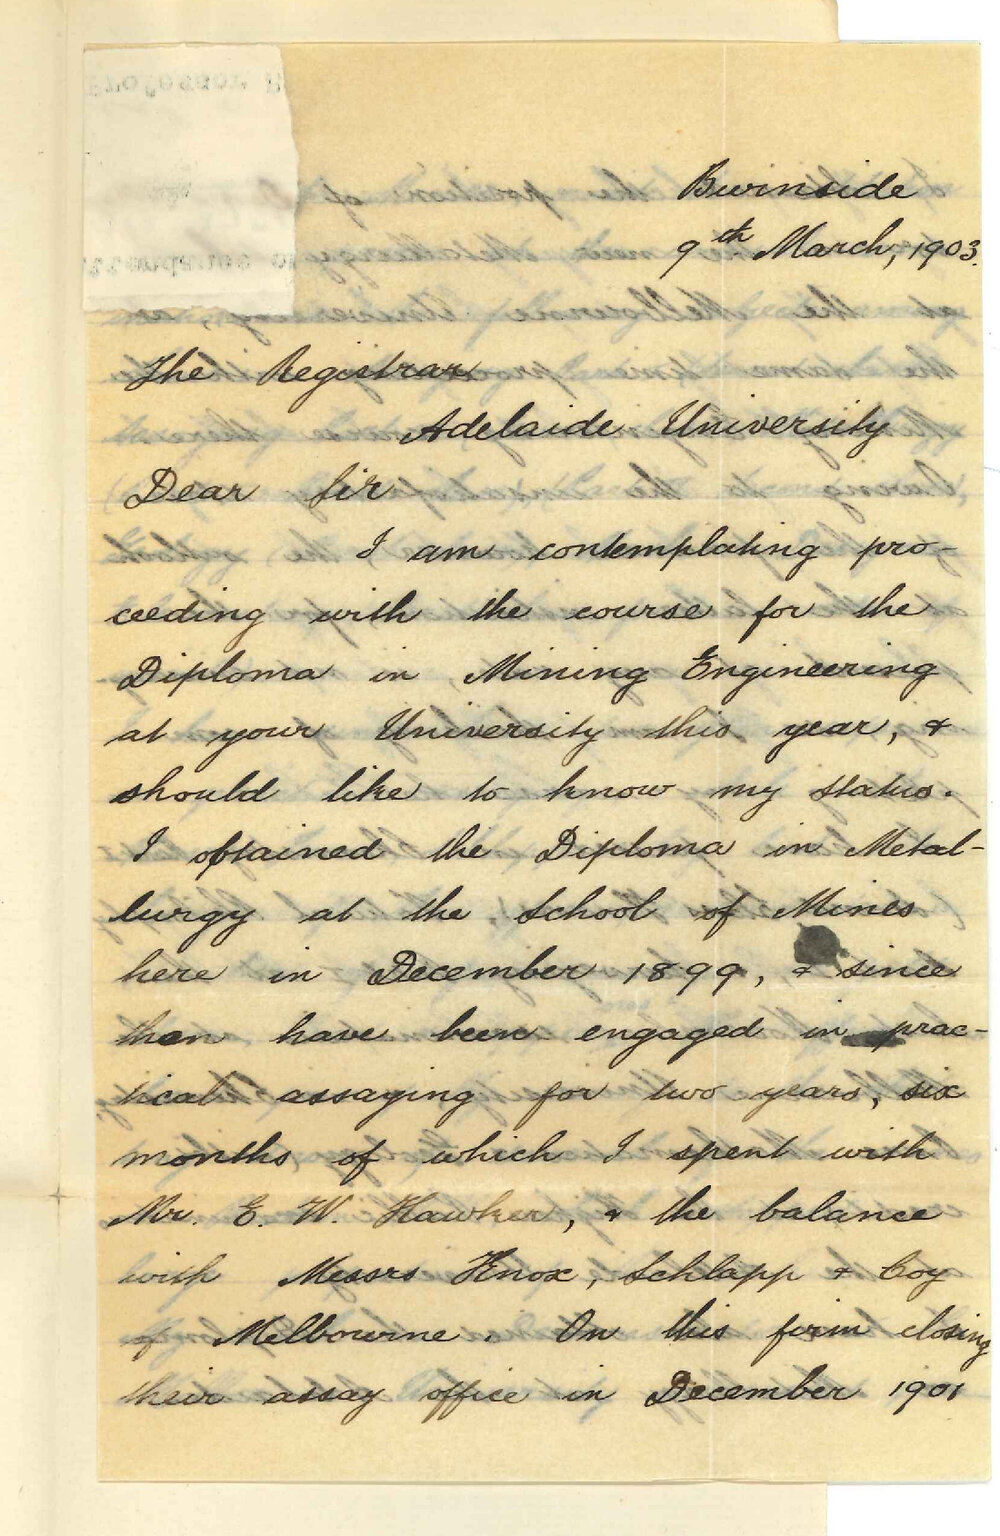 Burnside
9th March, 1903.
The Registrar
Adelaide University
Dear Sir
I am contemplating pro-
ceeding with the course for the
Diploma in Mining Engineering
at your University this year, &
should like to know my status.
I obtained the Diploma in Metal-
lurgy at the School of Mines
here in December 1899, & since
then have been engaged in prac-
tical assaying for two years, six
months of which I spent with
Mr. E. W. Hawker, & the balance
with Messrs Knox, Schlapp & Coy
of Melbourne. On this firm closing
their assay office in December 1901